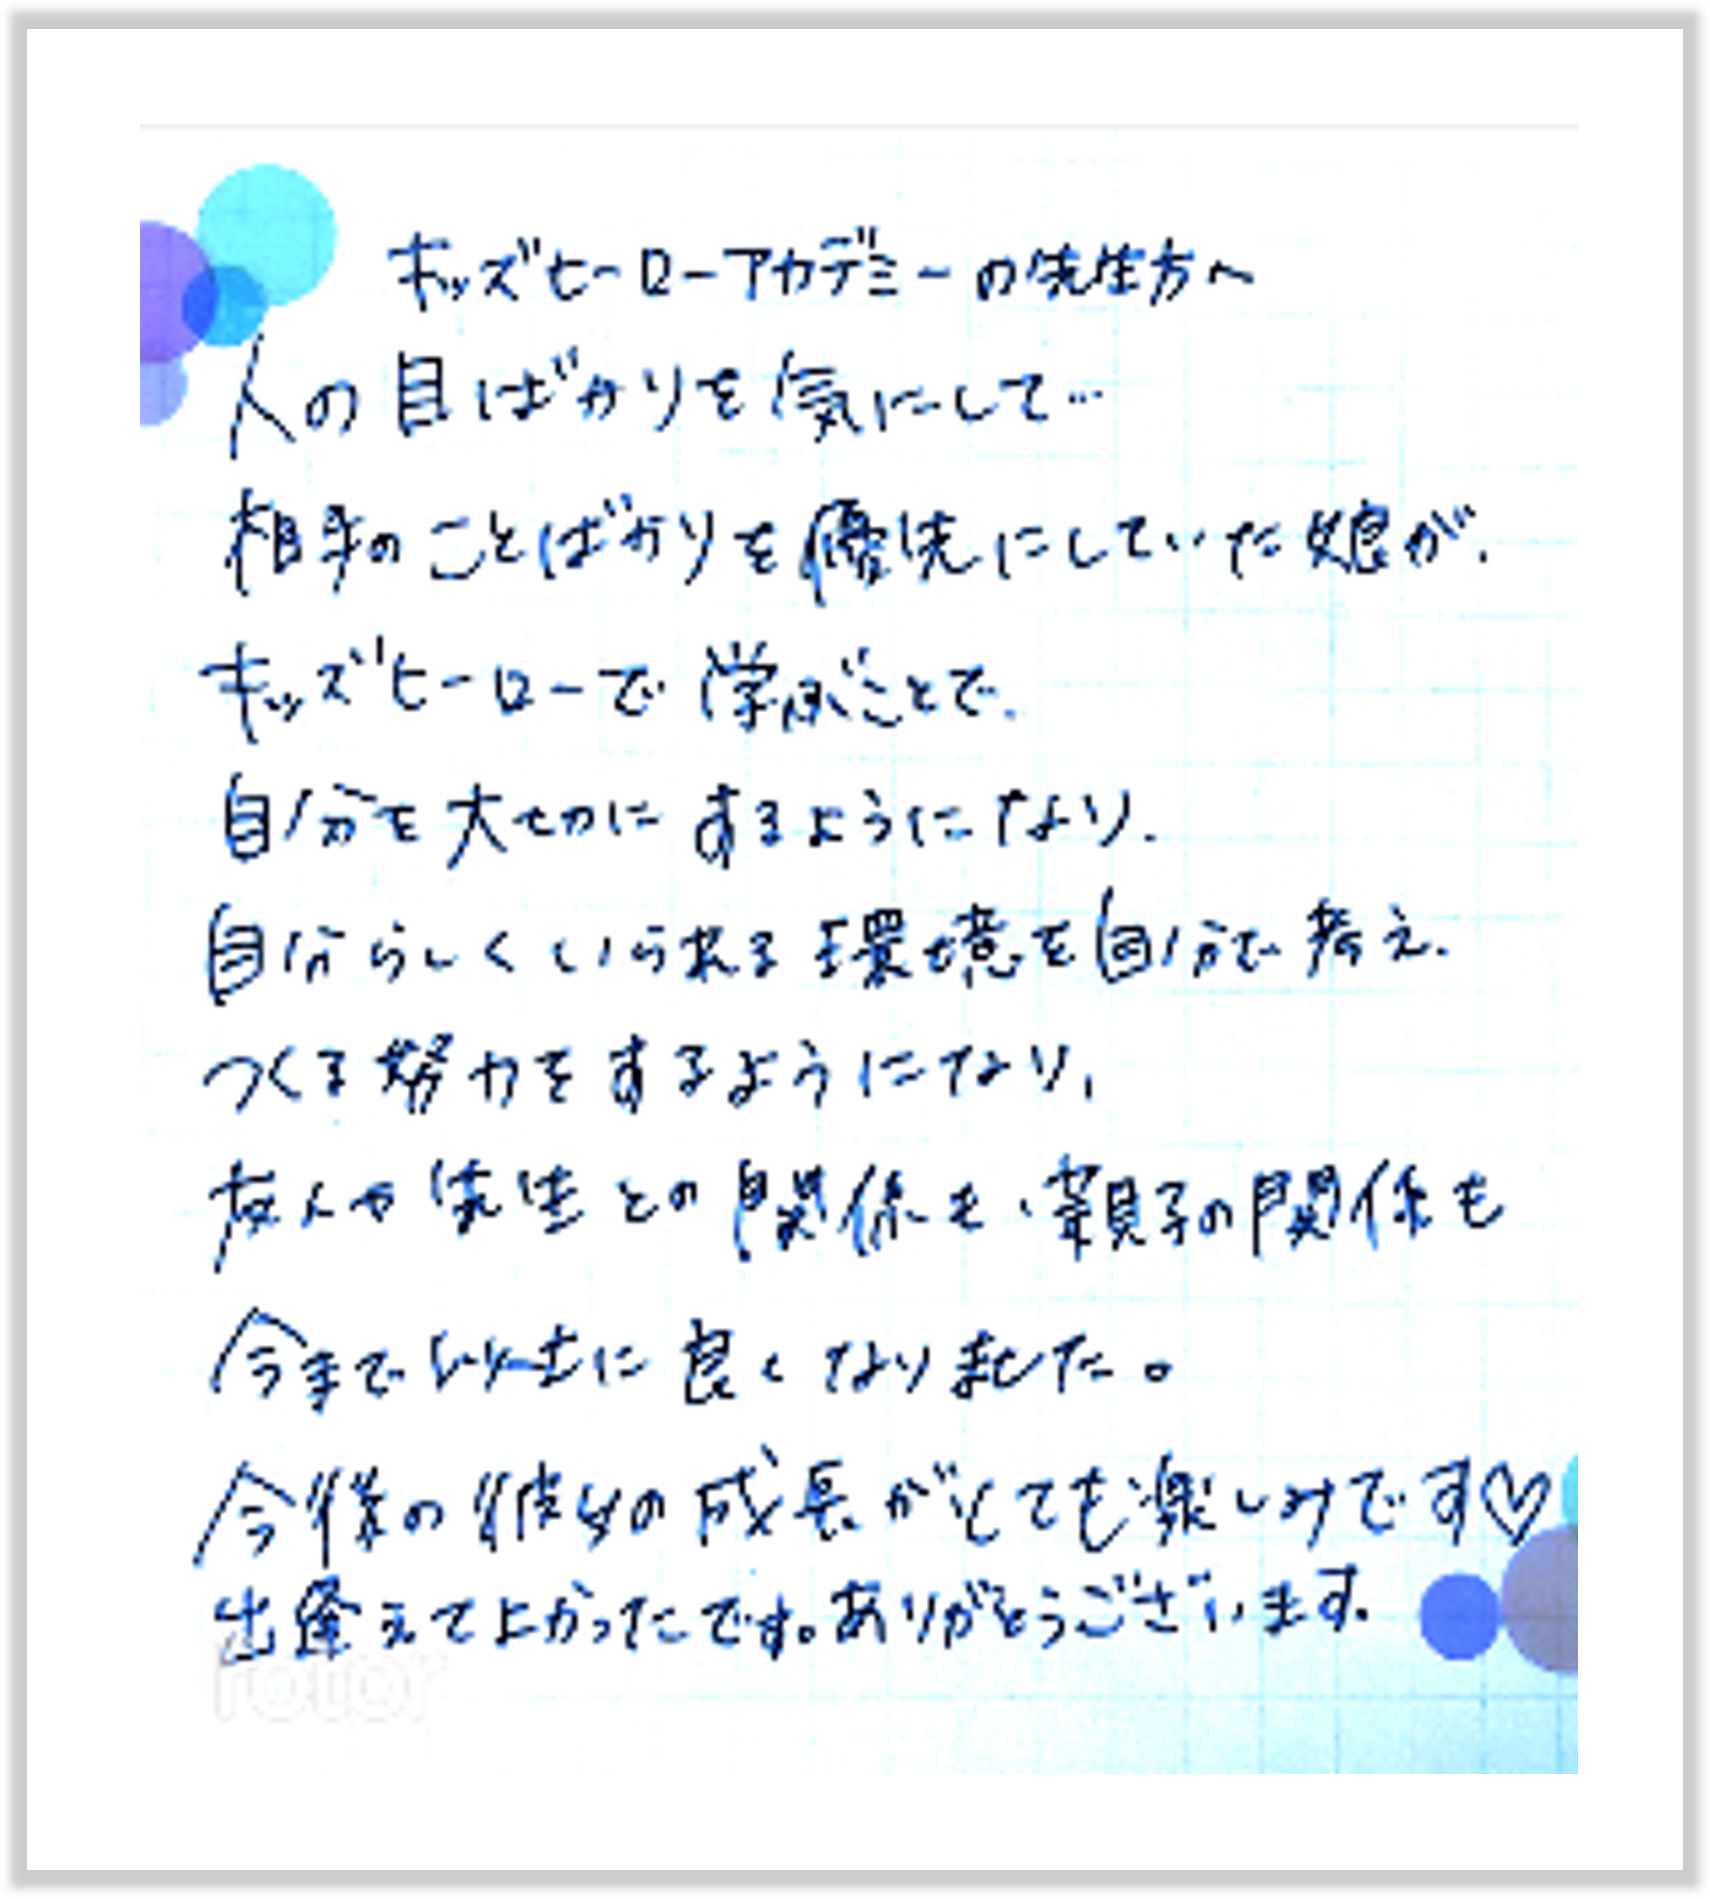 キッズヒーローアカデミーの先生方へ
人の目ばかりを気にして…
相手のことばかりを優先にしていた娘が、
キッズヒーローで学ぶことで、
自分を大切にするようになり、
自分らしくいられる環境を自分で考え、
つくる努力をするようになり、
友人や先生との関係も、親子の関係も
今まで以上に良くなりました。
今後の彼女の成長がとても楽しみです♡
出逢えて良かったです。ありがとうございます。
rotor